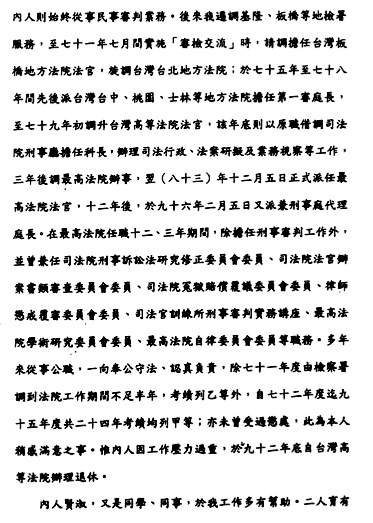 內人則始終從事民事審判業務。後來我遞調基隆、板橋等地檢署
服務，至七十一年七月間實施「審檢交流」時，請調擔任台灣板
橋地方法院法官，旋調台灣台北地方法院；於七十五年至七十八
年間先後派台灣台中、桃園、士林等地方法院擔任第一審庭長，
至七十九年初調升台灣高等法院法官，該年底則以原職借調司法
院刑事廳擔任科長，辦理司法行政、法案研擬及業務視察等工作，
三年後調最高法院辦事，翌（八十三）年十二月五日正式派任最
高法院法官，十二年後，於九十六年二月五日又派兼刑事庭代理
庭長。在最高法院任職十二、三年期間，除擔任刑事審判工作外，
並曾兼任司法院刑事訴訟法研究修正委員會委員、司法院法官辦
案書類審查委員會委員、司法院冤獄賠償覆議委員會委員、律師
懲戒覆審委員會委員、司法官訓練所刑事審判實務講座、最高法
院學術研究委員會委員、最高法院自律委員會委員等職務。多年
來從事公職，一向奉公守法、認真負責，除七十一年度由檢察署
調到法院工作期間不足半年，考績列乙等外，自七十二年度迄九
十五年度共二十四年考績均列甲等；亦未曾受過懲處，此為本人
稍感滿意之事。惟內人因工作壓力過重，於九十二年底自台灣高
等法院辦理退休。
內人賢淑，又是同學、同事，於我工作多有幫助。二人育有